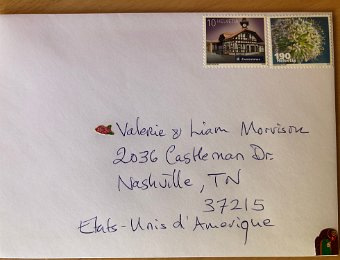 10 HELVETIA
190
Helvetia
Valerie & Liam Morrison
2036 Castleman Dr.
Nashville, TN
37215
Etats-Unis d'Amerique